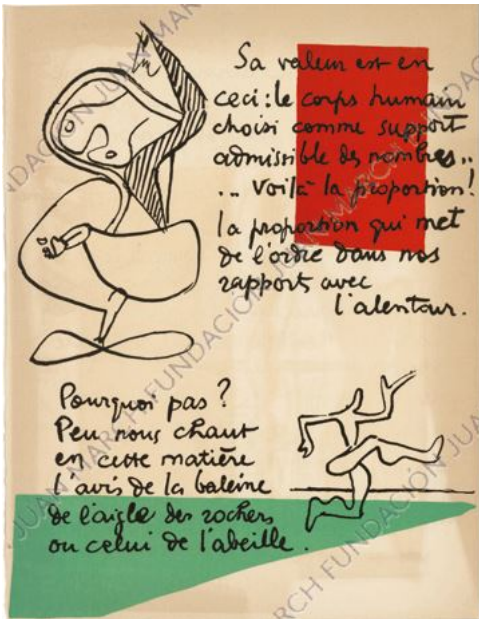 Sa valeur est en
ceci : le corps humain
choisi comme support
admissible des nombres..
... voilà la proportion!
la proportion qui met
de l'ordre dans nos
rapports avec
l'alentour.
Pourquoi pas ?
Peu nous chaut
en cette matière
l'avis de la baleine
de l'aigle des rochers
ou celui de l'abeille.
FUNDACIÓN JUAN MARCH